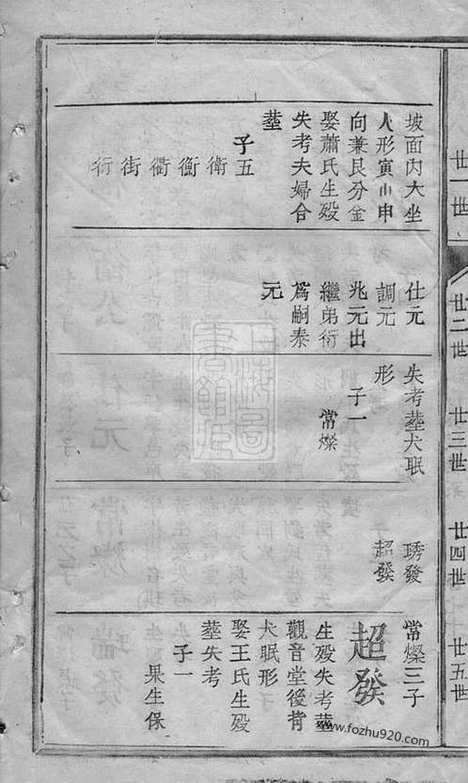 廿一世
廿二世
廿三世
廿四世
廿五世
坡面內大坐
人形寅山申
向兼艮分金
娶蕭氏生歿
失考夫婦合
塟
子五
衛
衡
衢
街
衍
仕元
調元
兆元出
繼弟衍
爲嗣泰
元
失考塟犬眠
形
子一
常燦
琇發
超發
常燦三子
超發
生歿失考塟
觀音堂後背
犬眠形
娶王氏生歿
塟失考
子一
果生保
上海圖書館藏
www.fozhu920.com